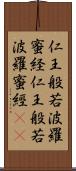 仁王般若波羅
蜜経仁王般若
波羅蜜經